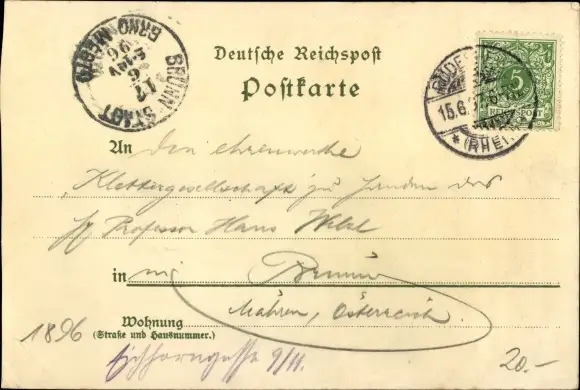 BRÜNN STADT
17
6
96
BRNO MĚSTO
Deutsche Reichspost
Postkarte
5
REICHSPOST
RÜDES
15.6.
* (RHEI
An Den ehrenwerthe
"Klettergesellschaft" zu Handen des
Professor Hans
in Brünn
Mähren, Österreich.
Wohnung
(Straße und Hausnummer.)
Eichhorngasse 9/II.
1896
20.-